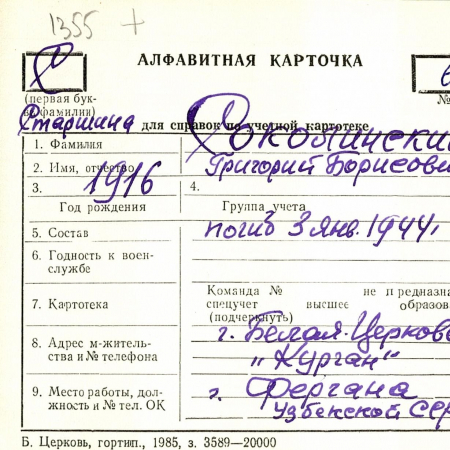 1355 +
АЛФАВИТНАЯ КАРТОЧКА
(первая бук-
ва фамилии)
№
Старшина для справок по учетной картотеке
1. Фамилия
2. Имя, отчество Григорий Борисови
3. 1916 4.
Год рождения Группа учета
5. Состав погиб 3 янв. 1944,
6. Годность к воен-
службе
Команда № не предназна
7. Картотека спецучет высшее образов
(подчеркнуть)
8. Адрес м-житель- г. Белая-Церковь
ства и № телефона „Курган"
9. Место работы, дол- г. Фергана
жность и № тел. ОК Узбекской ССР
Б. Церковь, гортип., 1985, з. 3589—20000